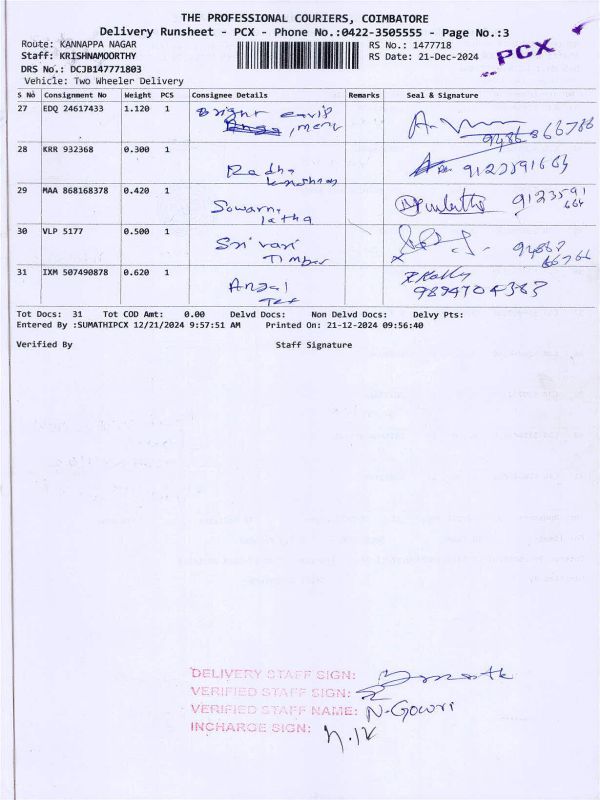 THE PROFESSIONAL COURIERS, COIMBATORE
Delivery Runsheet - PCX - Phone No.:0422-3505555 - Page No.:3
Route: KANNAPPA NAGAR
RS No.: 1477718
Staff: KRISHNAMOORTHY
RS Date: 21-Dec-2024
PCX
DRS No.: DCJB147771803
Vehicle: Two Wheeler Delivery
S No Consignment No Weight PCS Consignee Details Remarks Seal & Signature
27 EDQ 24617433 1.120 1 Bright
28 KRR 932368 0.300 1 Radha
9123591664
29 MAA 868168378 0.420 1 Sowarn
latha
9123591
664
30 VLP 5177 0.500 1 Sri vari
Timber
31 IXM 507490878 0.620 1 Angal
Tex
9894704383
Tot Docs: 31 Tot COD Amt: 0.00 Delvd Docs: Non Delvd Docs: Delvy Pts:
Entered By :SUMATHIPCX 12/21/2024 9:57:51 AM Printed On: 21-12-2024 09:56:40
Verified By Staff Signature
DELIVERY STAFF SIGN:
VERIFIED STAFF SIGN:
VERIFIED STAFF NAME: N-Gowri
INCHARGE SIGN: